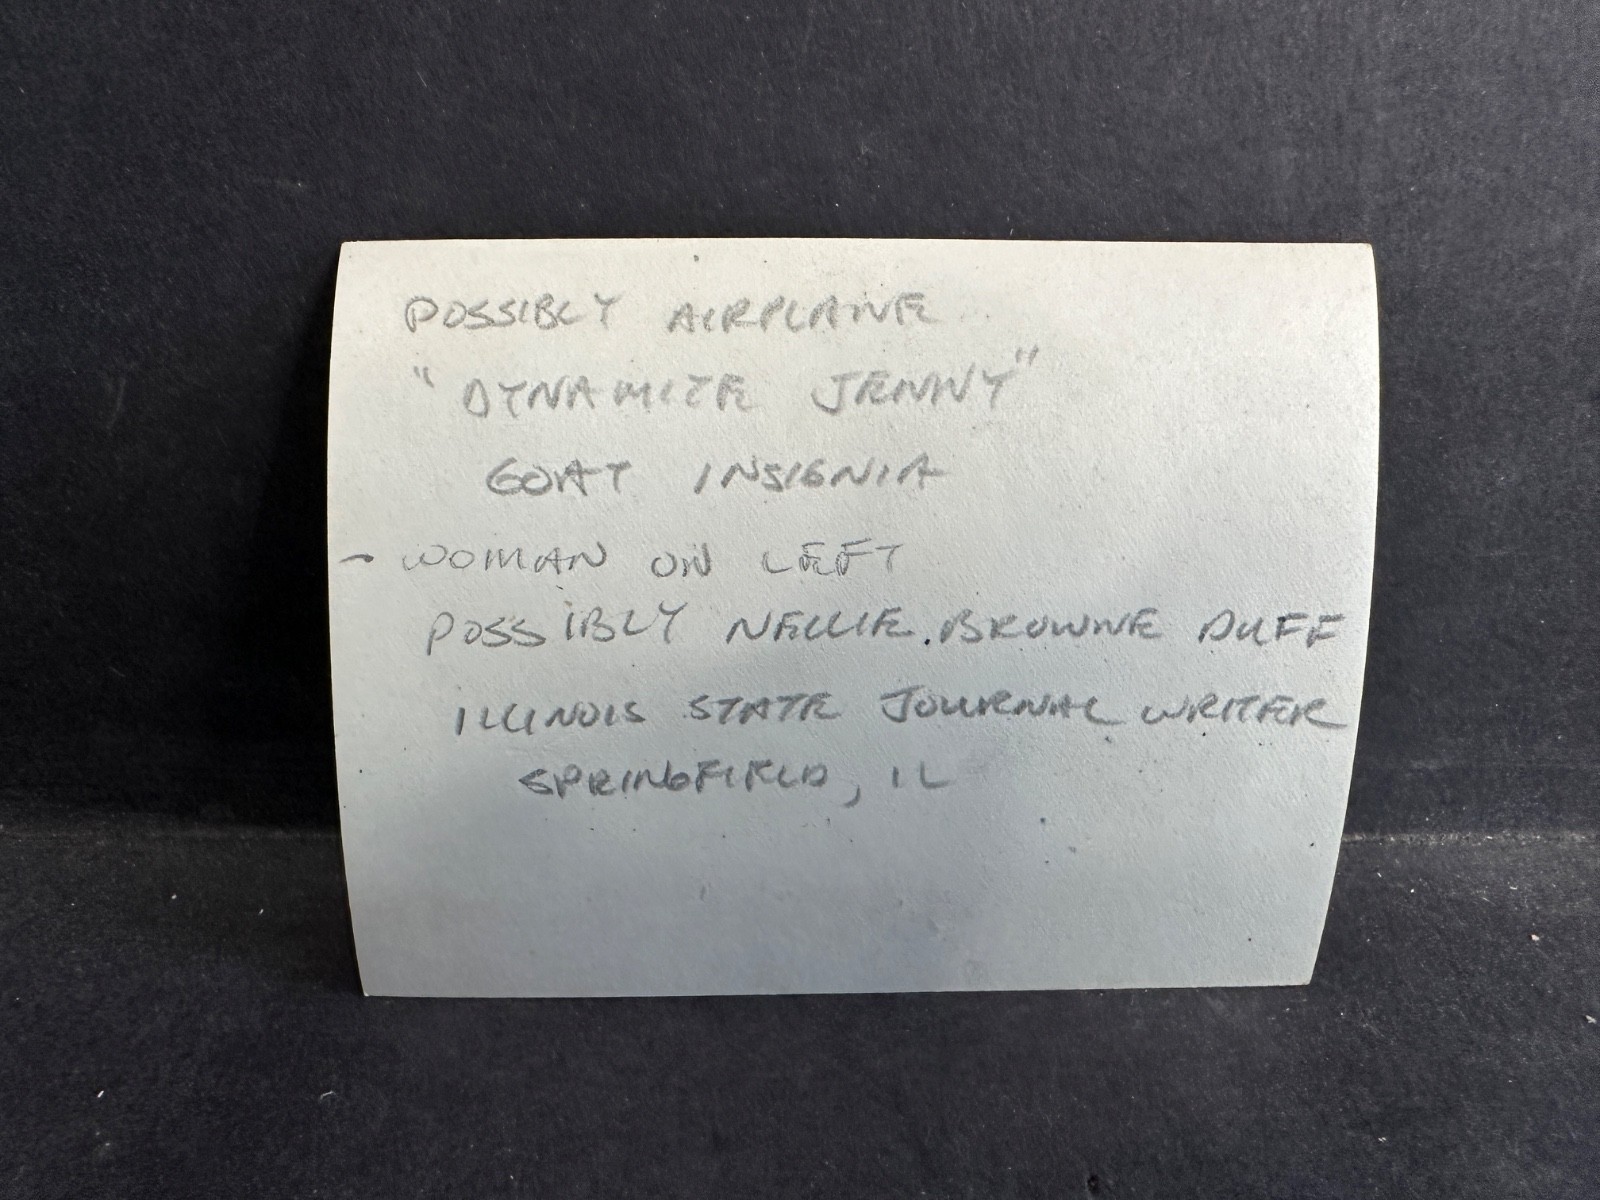 POSSIBLY AIRPLANE
"DYNAMITE JENNY"
GOAT INSIGNIA
- WOMAN ON LEFT
POSSIBLY NELLIE BROWNE DUFF
ILLINOIS STATE JOURNAL WRITER
SPRINGFIELD, IL